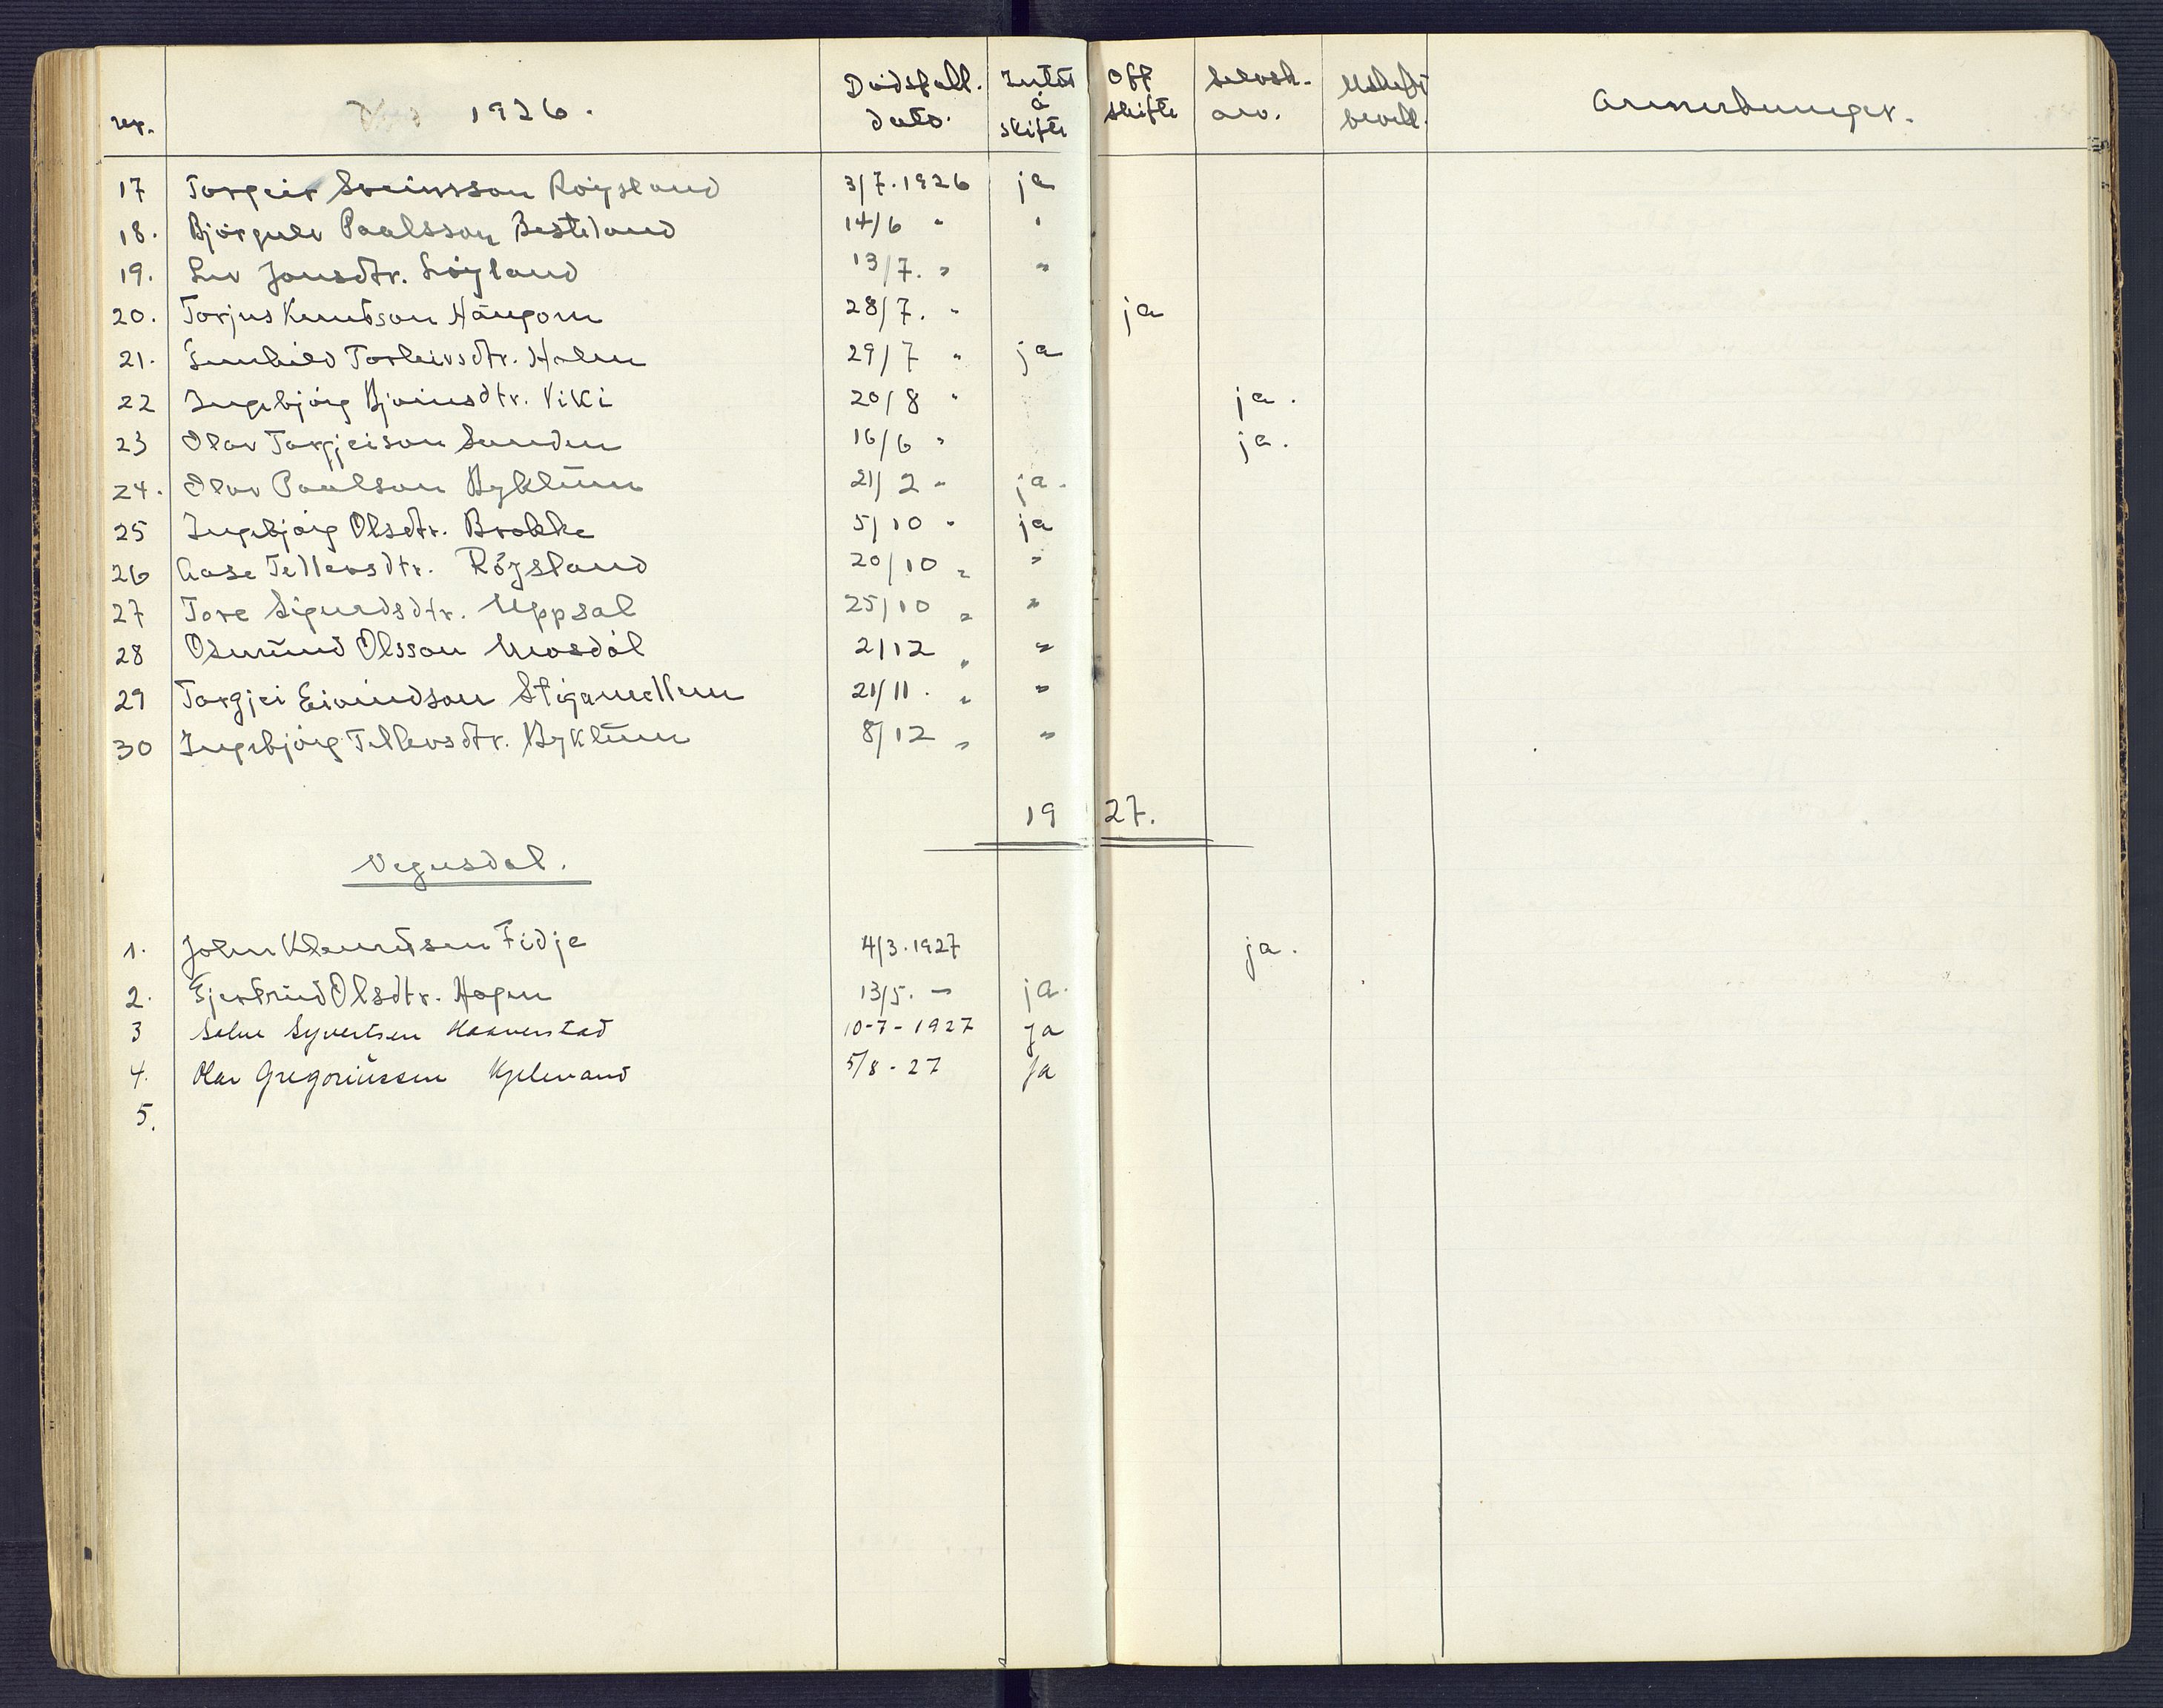 nr. 1926. Dödsfall. dato. Intet å skifte Off skifte Selvsk. arv. Uskifte bevill. Anmerkninger.
17 Torgeir Sveinsson Röysland 3/7.1926 ja
18. Björgulv Paalsson Besteland 14/6 " "
19. Liv Jonsdtr. Löyland 13/7. " "
20. Torjus Knutson Haugom 28/7. " ja
21. Gunhild Torleivsdtr. Holen 29/7 " ja
22 Ingebjörg Bjornsdtr. Viki 20/8 " ja.
23 Olav Torgjeison Sanden 16/6 " ja.
24. Olav Paulson Byklum 21/2 " ja.
25 Ingebjörg Olsdtr. Brokke 5/10 " ja
26 Aase Tellevsdtr. Röysland 20/10 " "
27 Tore Sigurdsdtr. Uppsal 25/10 " "
28 Osmund Olsson Mosdöl 2/12 " "
29 Torgjei Eivindson Stigamellem 21/11. " "
30 Ingebjörg Tellevsdtr. Byklum 8/12 " "
1927.
Vegusdal.
1. John Klemetsen Fidje 4/3.1927 ja.
2. Gjertrud Olsdtr. Hagen 13/5. — ja.
3 Salve Syvertsen Haaverstad 10-7-1927 Ja
4. Olav Gregoriussen Kjelevand 5/8-27 Ja
5.